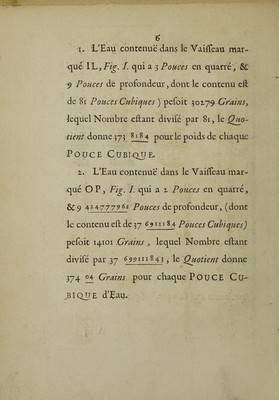 6
1. L'Eau contenuë dans le Vaisseau mar-
qué IL, Fig. I. qui a 3 Pouces en quarré, &
9 Pouces de profondeur, dont le contenu est
de 81 Pouces Cubiques) pesoit 30279 Grains,
lequel Nombre estant divisé par 81, le Quo-
tient donne 373 8184 pour le poids de chaque
POUCE CUBIQUE.
2. L'Eau contenuë dans le Vaisseau mar-
qué OP, Fig. I. qui a 2 Pouces en quarré,
& 9 424777961 Pouces de profondeur, (dont
le contenu est de 37 6911184 Pouces Cubiques)
pesoit 14101 Grains, lequel Nombre estant
divisé par 37 699111843, le Quotient donne
374 04 Grains pour chaque POUCE CU-
BIQUE d'Eau.